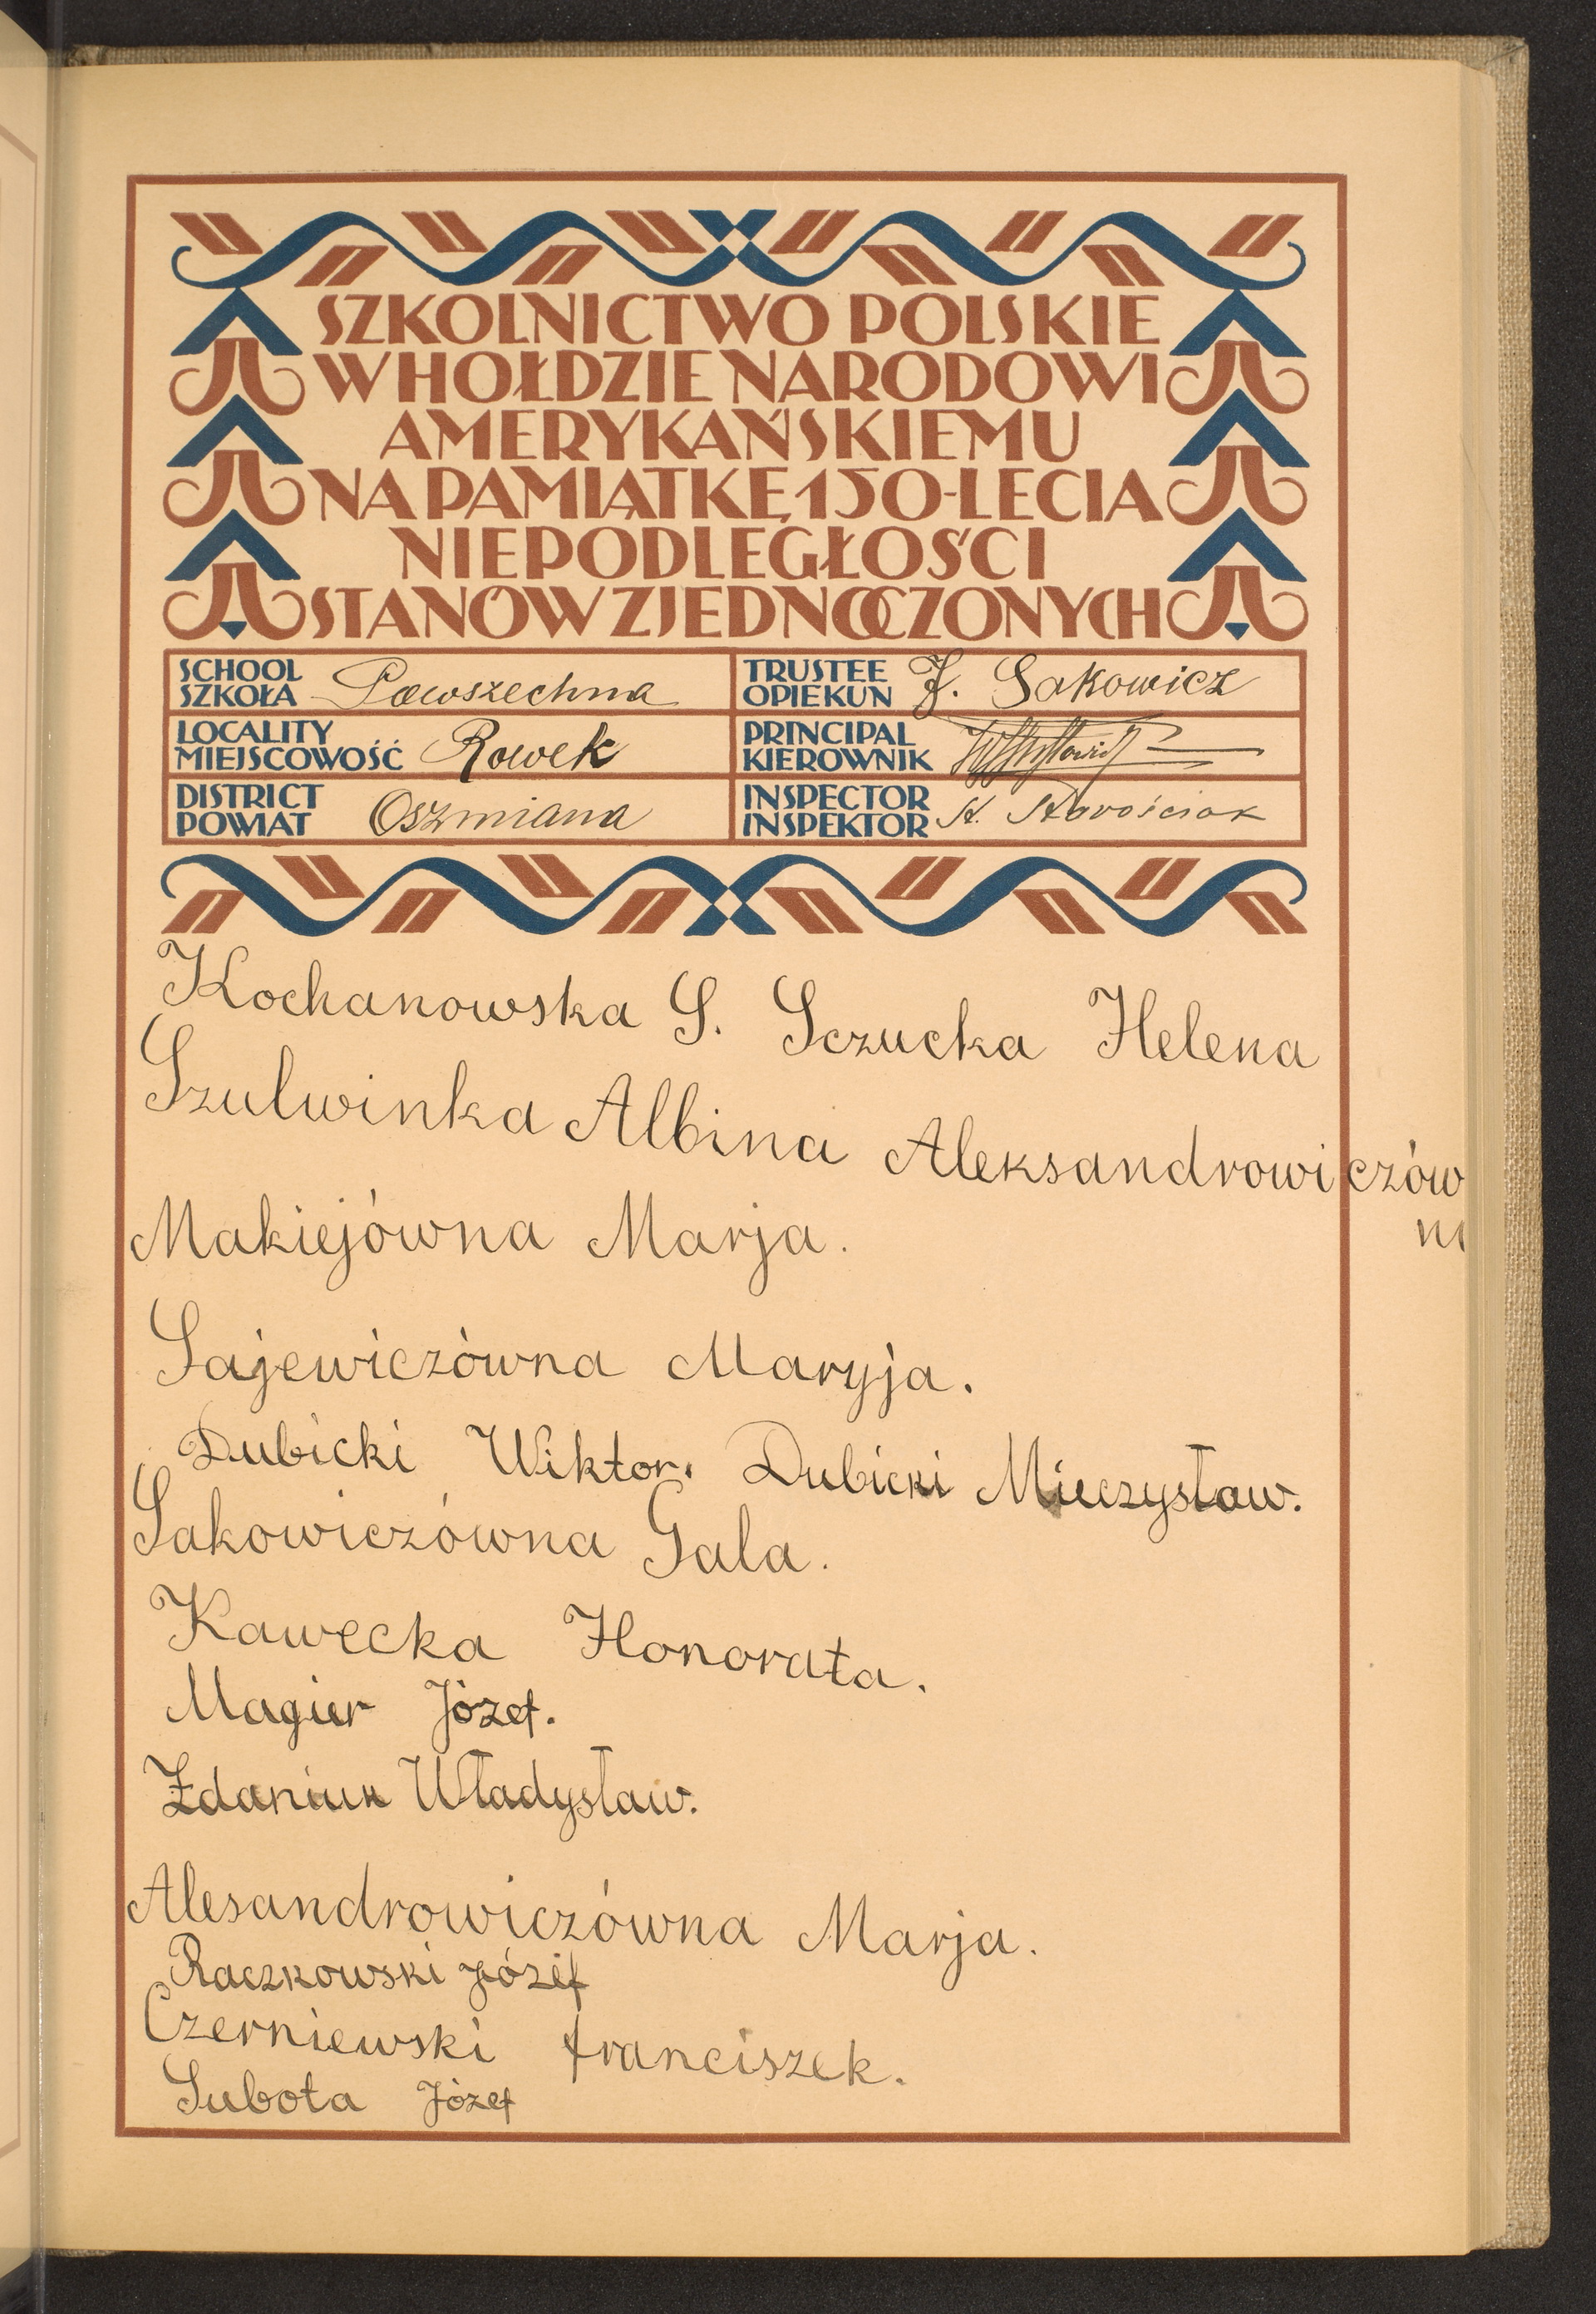 SZKOLNICTWO POLSKIE
W HOŁDZIE NARODOWI
AMERYKAŃSKIEMU
NA PAMIĄTKĘ 150-LECIA
NIEPODLEGŁOŚCI
STANÓW ZJEDNOCZONYCH
SCHOOL
SZKOŁA Powszechna
TRUSTEE
OPIEKUN J. Sakowicz
LOCALITY
MIEJSCOWOŚĆ Rowek
PRINCIPAL
KIEROWNIK
DISTRICT
POWIAT Oszmiana
INSPECTOR
INSPEKTOR St. Starościak
Kochanowska S. Sczucka Helena
Szulwinka Albina Aleksandrowiczów
na
Makiejówna Marja.
Sajewiczówna Maryja.
Dubicki Wiktor. Dubicki Mieczysław.
Sakowiczówna Gala.
Kawecka Honorata.
Magier Józef.
Żdaniuk Władysław.
Alesandrowiczówna Marja.
Raczkowski Józef
Czerniewski franciszek.
Subota Józef